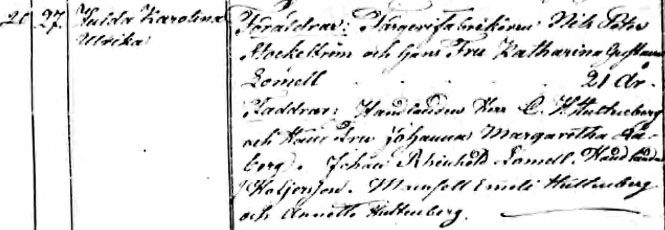 20 27. Hulda Karolina Ulrika
Föräldrar: Färgerifabrikören Nils Peter
Stockström och hans Fru Katharina Gustava
Lomell . . . . . 21 år.
Faddrar: Handlanden Herr C. Huttenberg
och Hans Fru Johanna Margaretha
berg. Johan Rheinhold Lomell. Handlanden
Mamsell Emeli Huttenberg
och Annette Huttenberg.